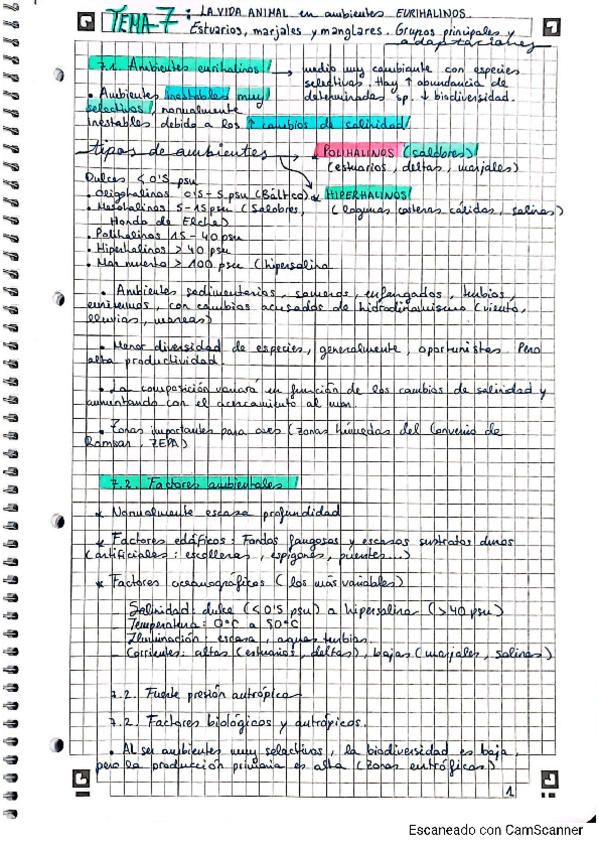 TEMA-7 : LA VIDA ANIMAL en ambientes EURIHALINOS.
Estuarios, marjales y manglares. Grupos principales y
adaptaciones
7.1. Ambientes eurihalinos → medio muy cambiante con especies
selectivas. Hay ↑ abundancia de
determinadas sp. ↓ biodiversidad.
• Ambientes inestables muy
selectivos, normalmente
inestables debido a los ↑ cambios de salinidad
tipos de ambientes
* POLIHALINOS (salobres)
(estuarios, deltas, marjales)
* HIPERHALINOS
(lagunas costeras cálidas, salinas)
Dulces < 0'5 psu
• Oligohalinos 0'5-5 psu (Báltico)
• Mesohalinos 5-15 psu (Salobres,
Hondo de Elche)
• Polihalinos 15-40 psu
• Hiperhalinos > 40 psu
• Mar muerto > 100 psu (hipersalina
• Ambientes sedimentarios, someros, enfangados, turbios,
extremos, con cambios acusados de hidrodinamismo (viento,
lluvias, mareas)
• Menor diversidad de especies, generalmente, oportunistas. Pero
alta productividad.
• La composición variará en función de los cambios de salinidad y
aumentando con el acercamiento al mar.
• Zonas importantes para aves (Zonas húmedas del Convenio de
Ramsar, ZEPA)
7.2. Factores ambientales
* Normalmente escasa profundidad
* Factores edáficos: Fondos fangosos y escasos sustratos duros
(artificiales: escolleras, espigones, puentes...)
* Factores oceanográficos (los más variables)
- Salinidad: dulce (<0'5 psu) a hipersalina (>40 psu)
- Temperatura: 0°C a 50°C
- Iluminación: escasa, aguas turbias.
- Corrientes: altas (estuarios, deltas), bajas (marjales, salinas)
7.2. Fuerte presión antrópica
7.2. Factores biológicos y antrópicos.
• Al ser ambientes muy selectivos, la biodiversidad es baja,
pero la producción primaria es alta (zonas eutróficas)
1
Escaneado con CamScanner